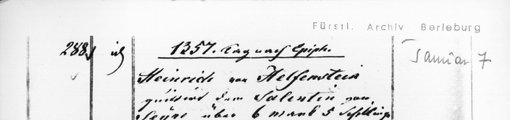 Fürstl. Archiv Berleburg
288
1357. Tag nach Epiph.
Januar 7
Heinrich von Helfenstein
quittirt dem Salentin von
über 6 mark 5 Schillinge